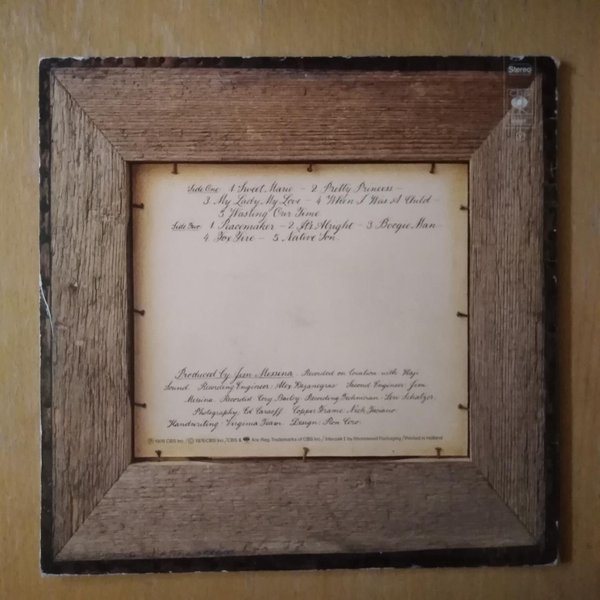 Stereo
CBS
Side One 1 Sweet Marie – 2 Pretty Princess –
3 My Lady, My Love – 4 When I Was A Child –
5 Wasting Our Time
Side Two 1 Peacemaker – 2 It's Alright – 3 Boogie Man –
4 Fox Fire – 5 Native Son
Produced by Jim Messina Recorded on Location with Haji
Sound. Recording Engineer: Alex Kazanegras Second Engineer: Jim
Messina Recordist Corey Bailey Recording Technician: Lew Schatzer
Photography: Ed Caraeff Copper Frame: Nick Fasciano
Handwriting: Virginia Team Design: Ron Coro
℗ 1976 CBS Inc. / © 1976 CBS Inc. / CBS & Are Reg. Trademarks of CBS Inc. / Printed in Holland